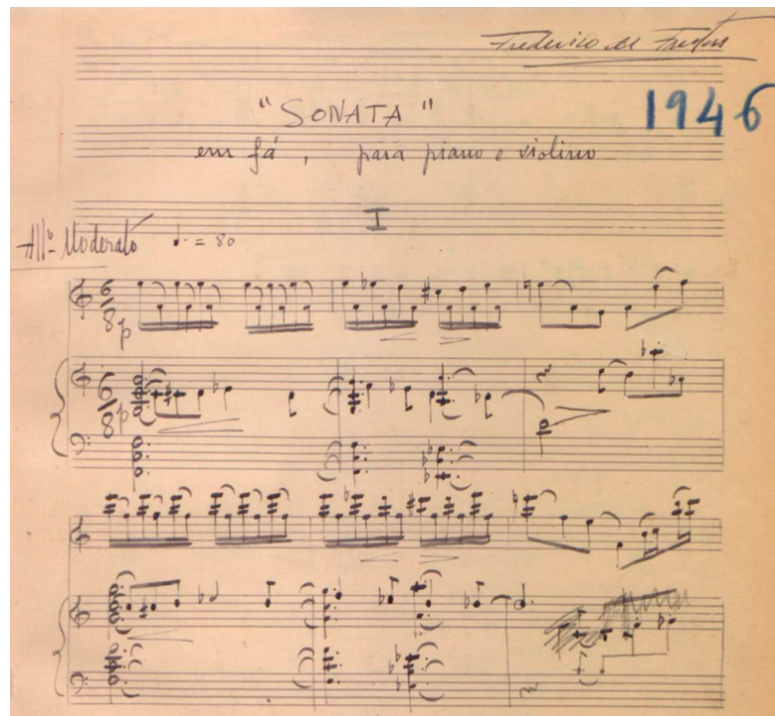 Frederico de Freitas
"SONATA"
1946
em fá, para piano e violino
I
All⁰ Moderato ♩. = 80
6/8 p
6/8 p